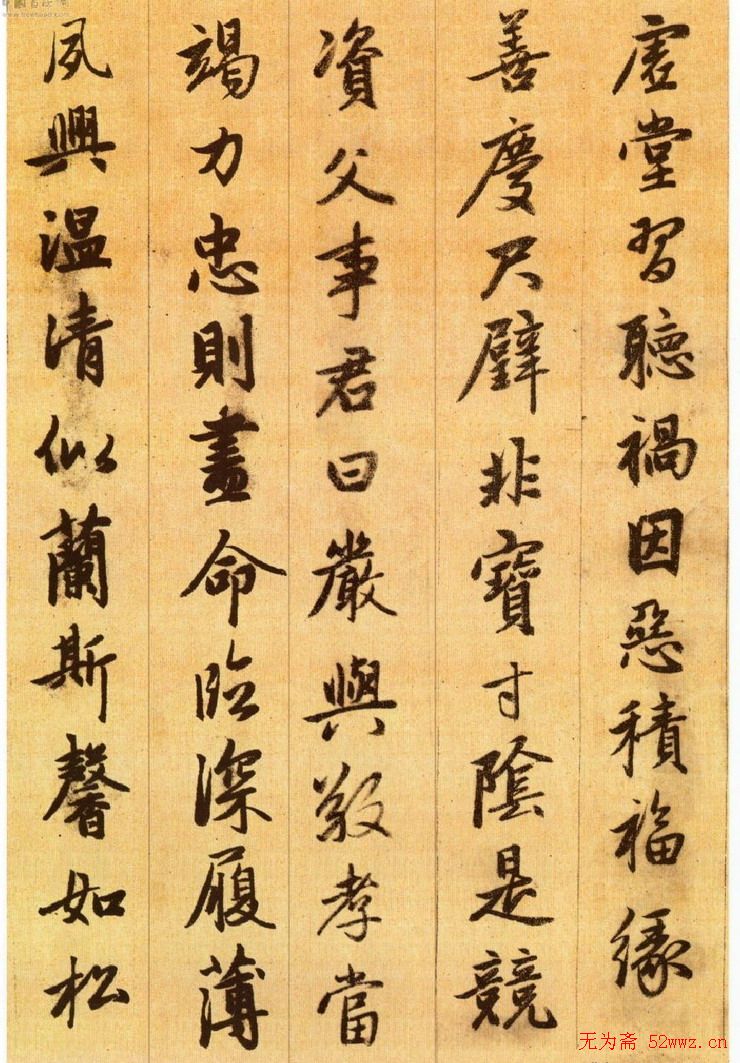 虗堂習聽禍因惡積福緣
善慶尺璧非寶寸陰是競
資父事君曰嚴與敬孝當
竭力忠則盡命臨深履薄
夙興温清似蘭斯馨如松
无为斋 52wwz.cn